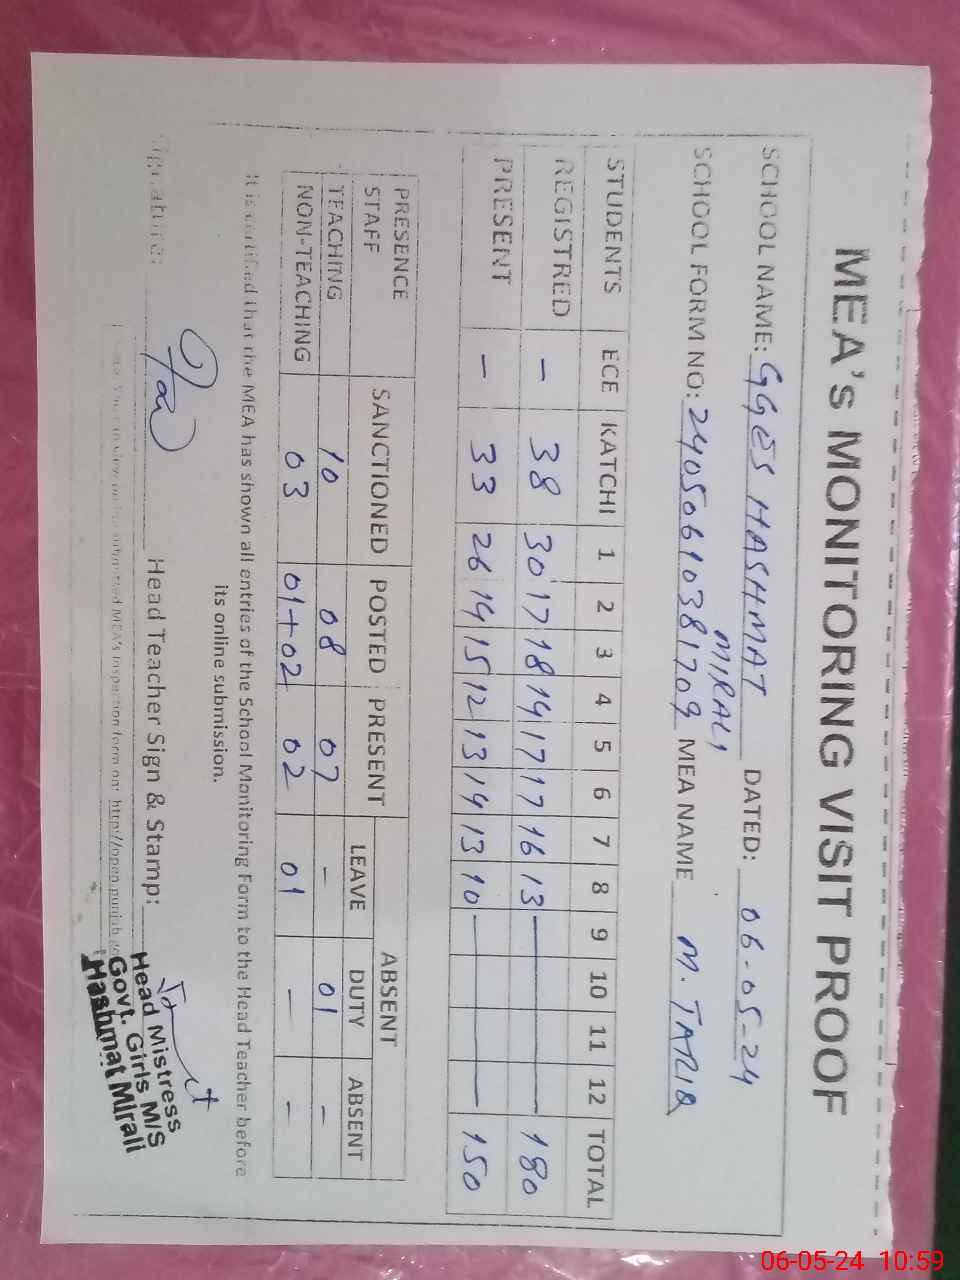 MEA's MONITORING VISIT PROOF
SCHOOL NAME: GGES HASHMAT MIRALI DATED: 06-05-24
SCHOOL FORM NO: 24050610381709 MEA NAME M. TARIQ
STUDENTS ECE KATCHI 1 2 3 4 5 6 7 8 9 10 11 12 TOTAL
REGISTRED - 38 30 17 18 14 17 17 16 13 180
PRESENT - 33 26 14 15 12 13 14 13 10 150
PRESENCE STAFF SANCTIONED POSTED PRESENT ABSENT
LEAVE DUTY ABSENT
TEACHING 10 08 07 - 01 -
NON-TEACHING 03 01+02 02 01 - -
It is certified that the MEA has shown all entries of the School Monitoring Form to the Head Teacher before
its online submission.
Signature: Head Teacher Sign & Stamp:
Head Mistress
Govt. Girls M/S
Hashmat Mirali
submitted MEA's Inspection form on: http://open.punjab.go
06-05-24 10:59